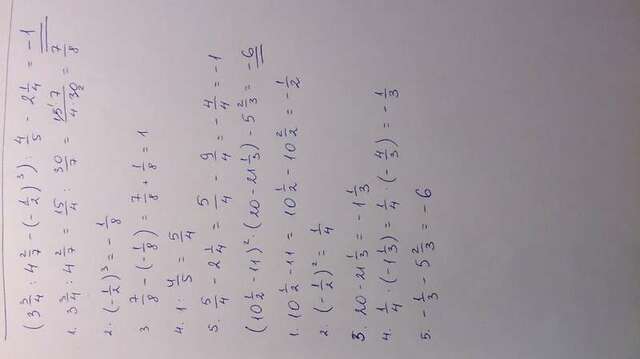 (3 3/4 : 4 2/7 - (-1/2)³) : 4/5 - 2 1/4 = -1
1. 3 3/4 : 4 2/7 = 15/4 : 30/7 = 15¹·7/4·30₂ = 7/8
2. (-1/2)³ = -1/8
3 7/8 - (-1/8) = 7/8 + 1/8 = 1
4. 1 : 4/5 = 5/4
5. 5/4 - 2 1/4 = 5/4 - 9/4 = -4/4 = -1
(10 1/2 - 11)² · (20 - 21 1/3) - 5 2/3 = -6
1. 10 1/2 - 11 = 10 1/2 - 10 2/2 = -1/2
2. (-1/2)² = 1/4
3. 20 - 21 1/3 = -1 1/3
4. 1/4 · (-1 1/3) = 1/4 · (-4/3) = -1/3
5. -1/3 - 5 2/3 = -6